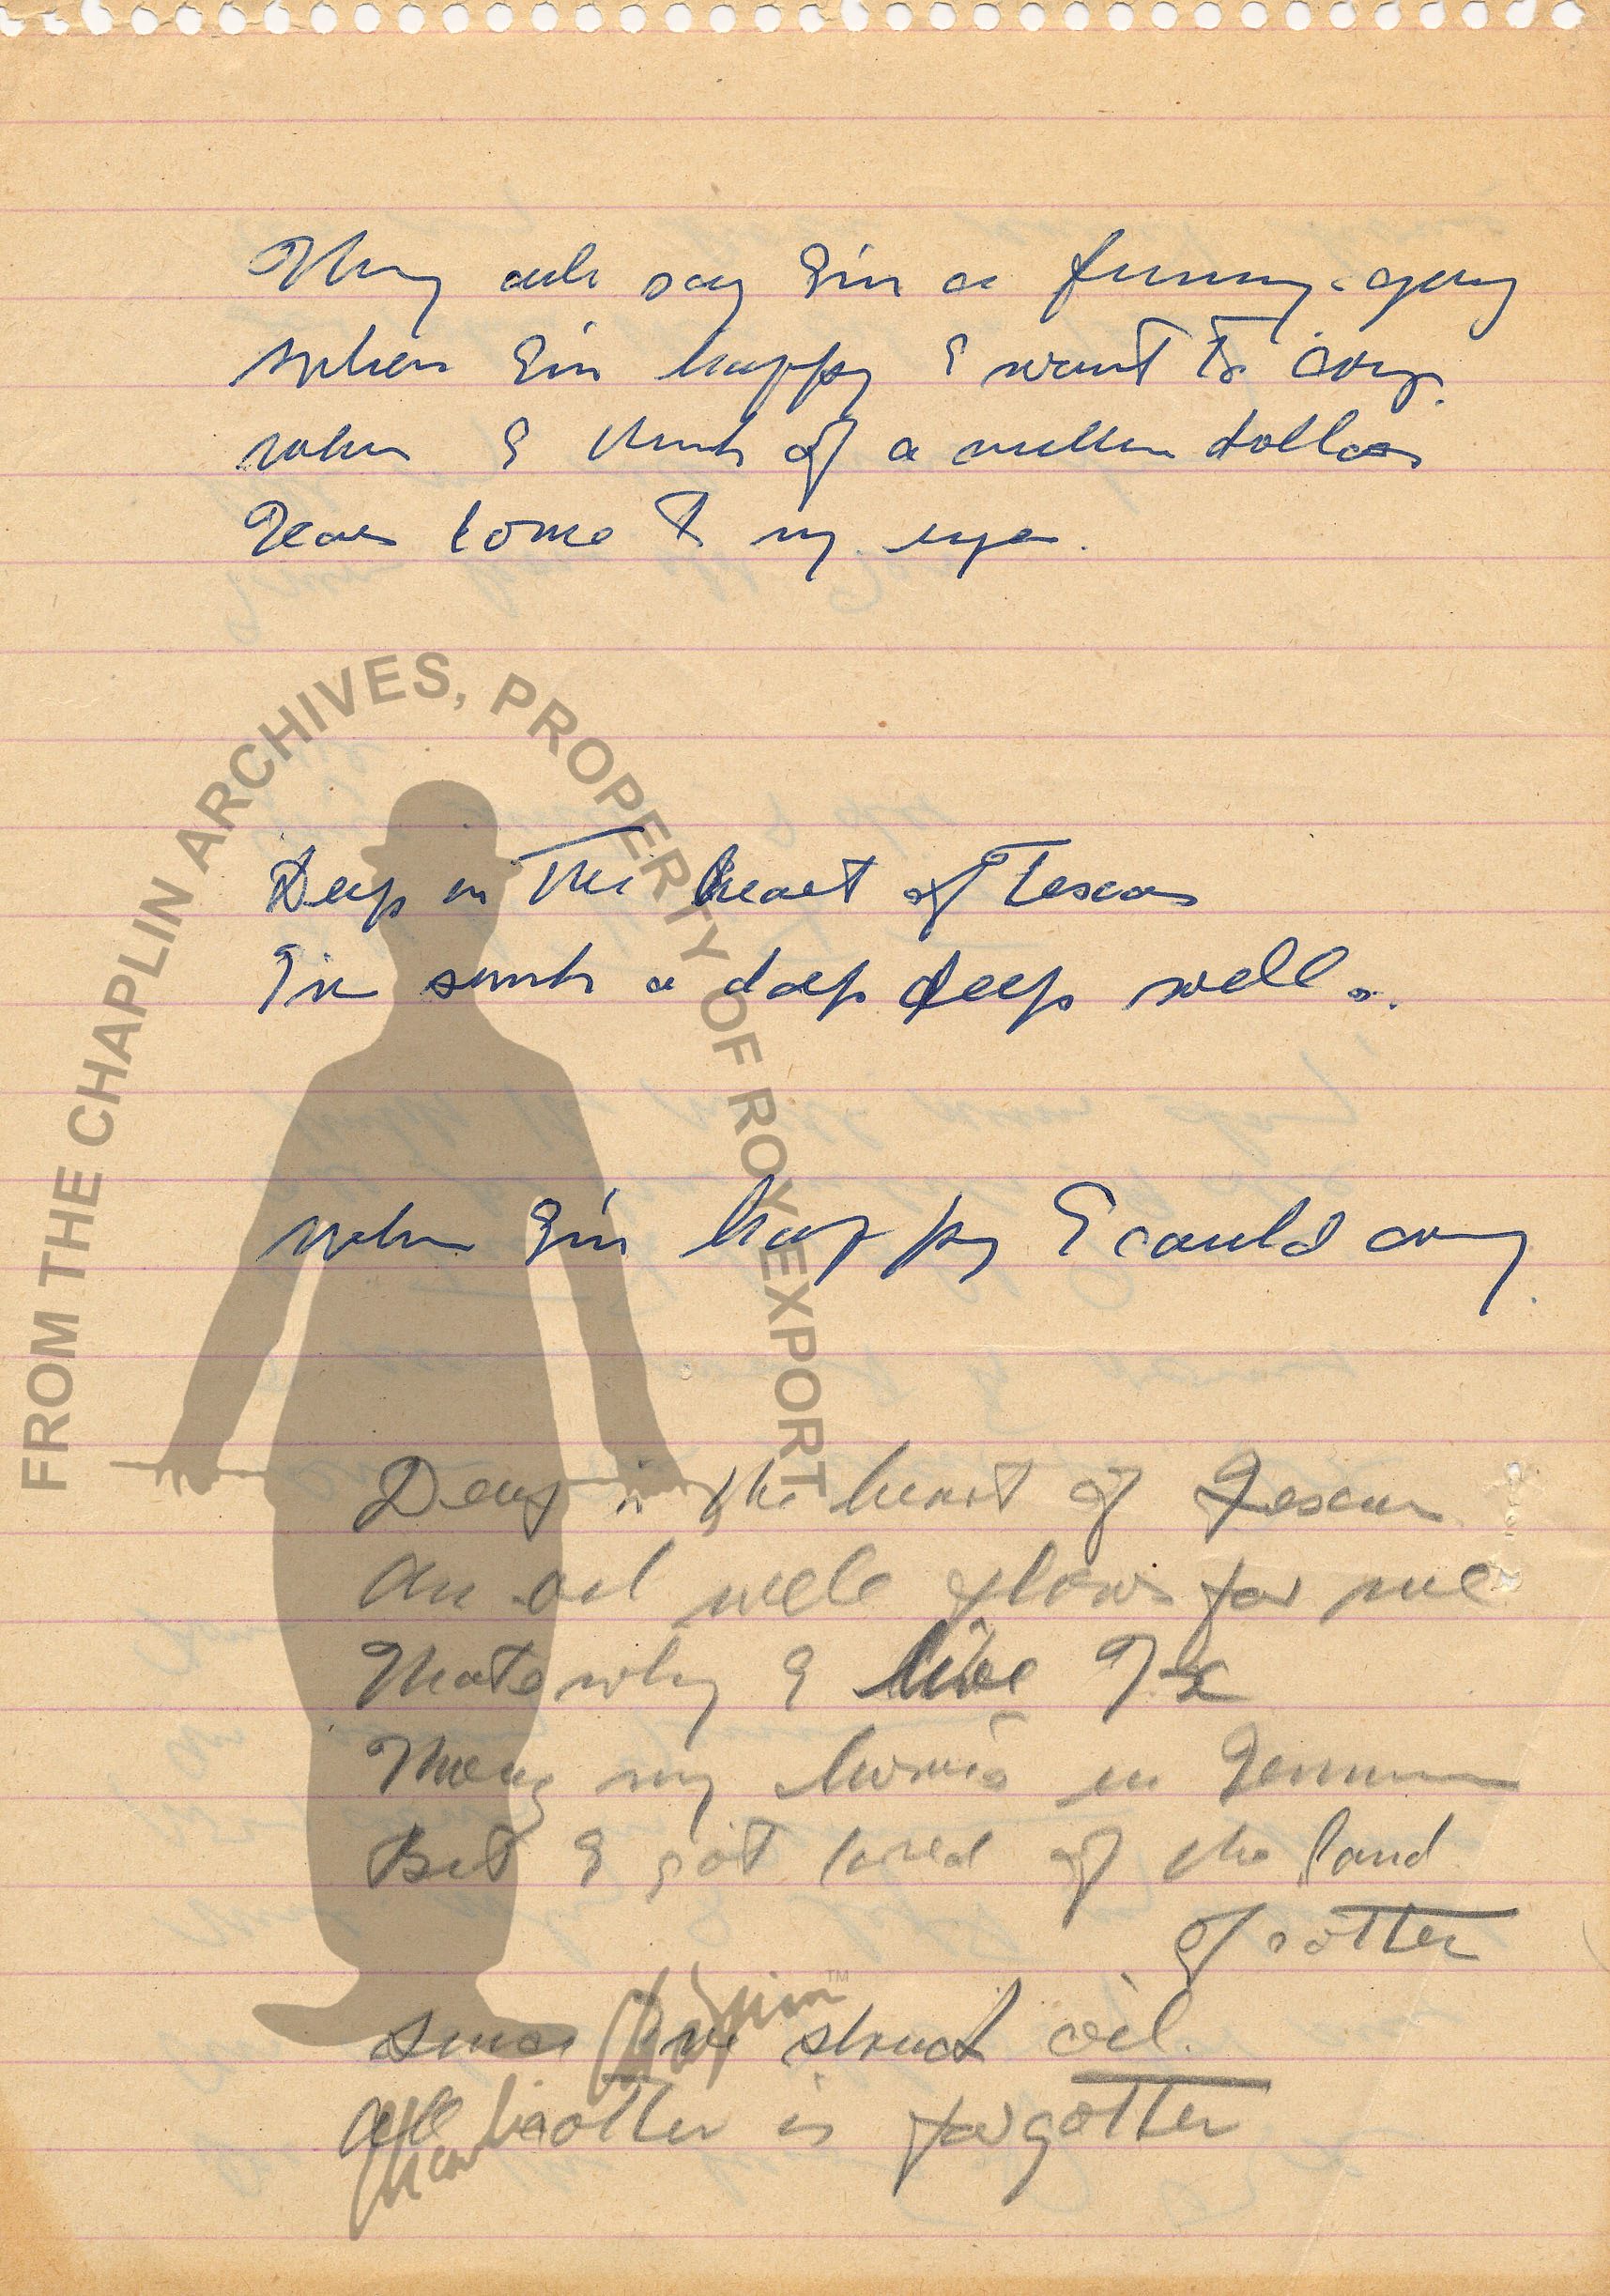 They all say I'm a funny guy
when I'm happy I want to cry.
when I think of a million dollars
Tears come to my eyes.
Deep in the heart of Texas
I've sunk a deep deep well.
when I'm happy I could cry
Deep in the heart of Texas
An oil well flows for me
Thats why I live
my home in
But I got tired of the land
of cotton
since I've struck oil.
All cotton is forgotten
FROM THE CHAPLIN ARCHIVES, PROPERTY OF ROY EXPORT
Charlie Chaplin™